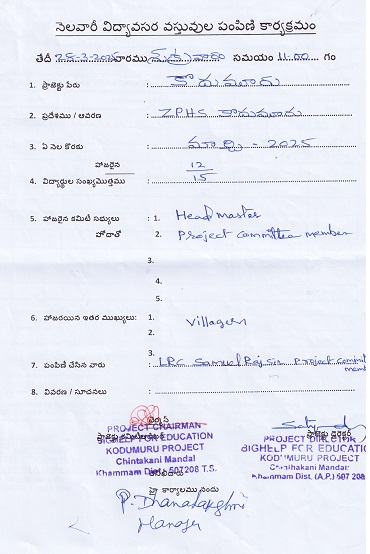 నెలవారీ విద్యావసర వస్తువుల పంపిణి కార్యక్రమం
తేదీ 25-3-2025 వారము శుక్రవారం సమయం 11-00 గం
1. ప్రాజెక్టు పేరు : కొదుమూరు
2. ప్రదేశము / ఆవరణ : ZPHS కొదుమూరు
3. ఏ నెల కొరకు : మార్చి - 2025
హాజరైన 12
4. విద్యార్థుల సంఖ్యమొత్తము : 15
5. హాజరైన కమిటి సభ్యులు : 1. Head master
హోదాతో 2. Project committee member
3.
4.
5.
6. హాజరయిన ఇతర ముఖ్యులు: 1.
2. Villagers
3.
7. పంపిణి చేసిన వారు : LRC Samuel Raj sir Project committ
mem
8. వివరణ / సూచనలు :
PROJECT CHAIRMAN
BIGHELP FOR EDUCATION
KODUMURU PROJECT
Chintakani Mandal
Khammam Dist. 507208 T.S.
PROJECT DIRECTOR
BIGHELP FOR EDUCATIO
KODUMURU PROJECT
Chinthakani Mandal
Khammam Dist, (A.P.) 507 208
హై కార్యాలము నందు
P. Dhanalakshmi
Manager